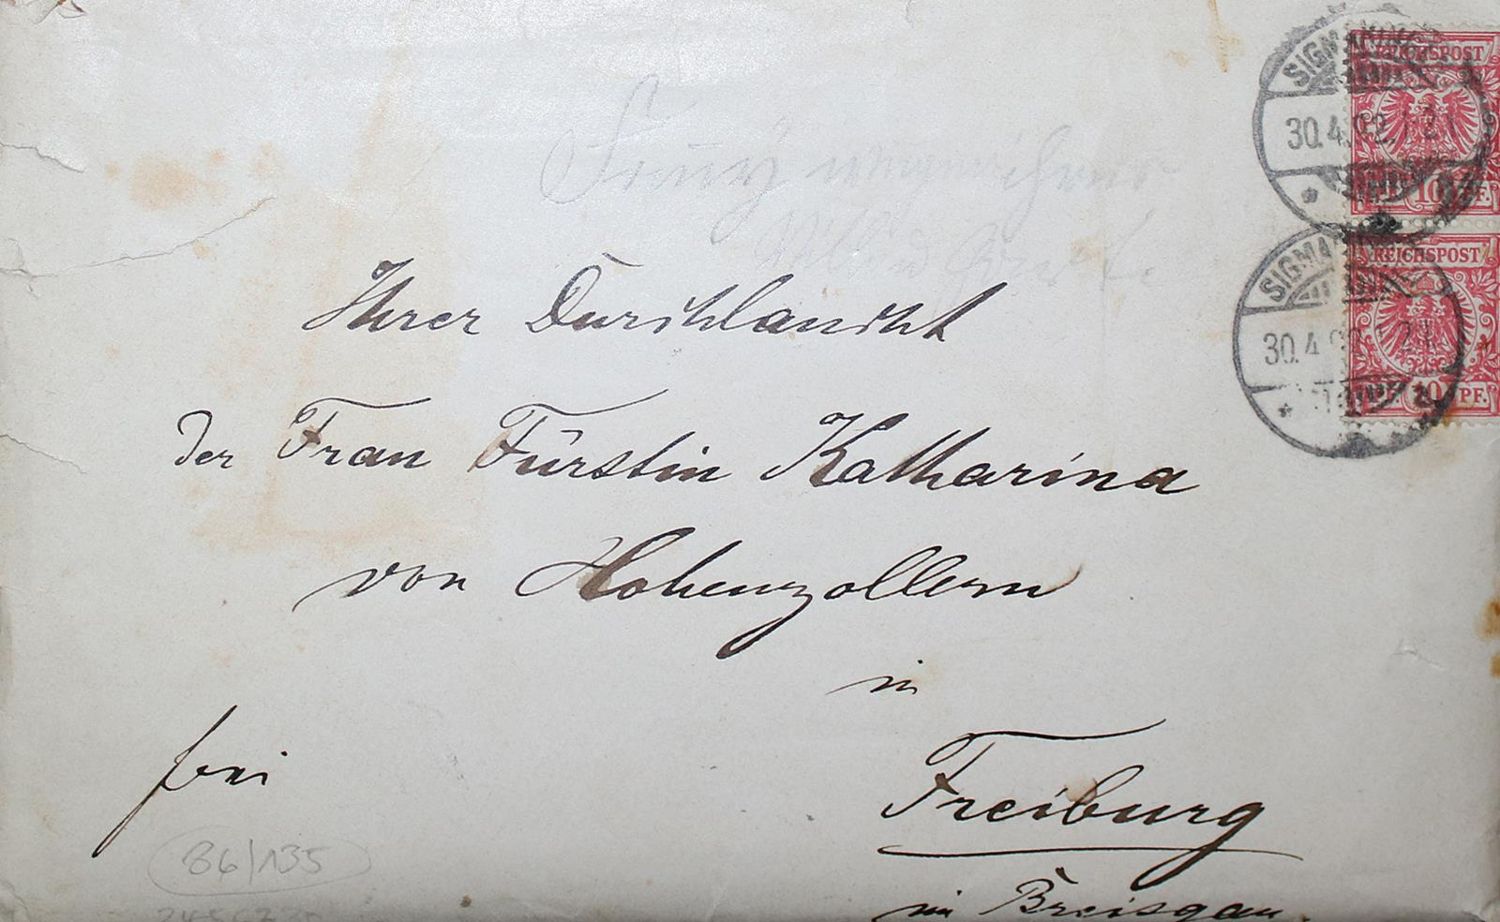 SIGMARINGEN
REICHSPOST
30.4.
10 PF.
SIGMA
REICHSPOST
30.4
10 PF.
Ihrer Durchlaucht
der Frau Fürstin Katharina
von Hohenzollern
in
frei
Freiburg
im Breisgau.
86/135